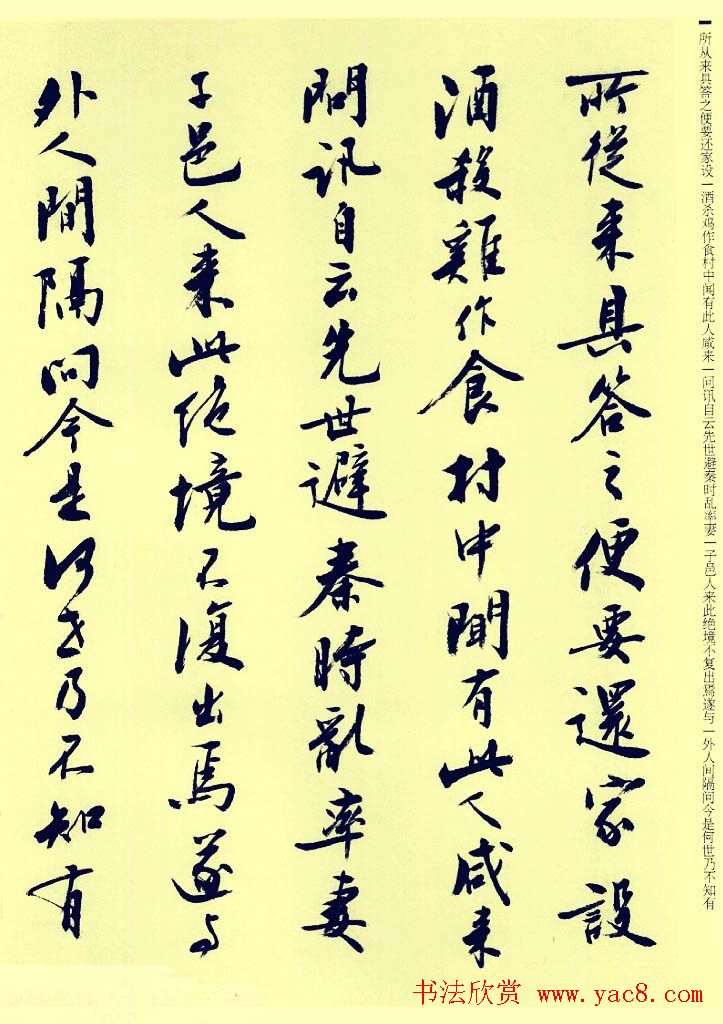 所從来具答之便要還家設
酒殺雞作食村中聞有此人咸来
問訊自云先世避秦時亂率妻
子邑人来此絕境不復出焉遂与
外人間隔问今是何世乃不知有
所从来具答之便要还家设一酒杀鸡作食村中闻有此人咸来一问讯自云先世避秦时乱率妻一子邑人来此绝境不复出焉遂与一外人间隔问今是何世乃不知有
书法欣赏 www.yac8.com